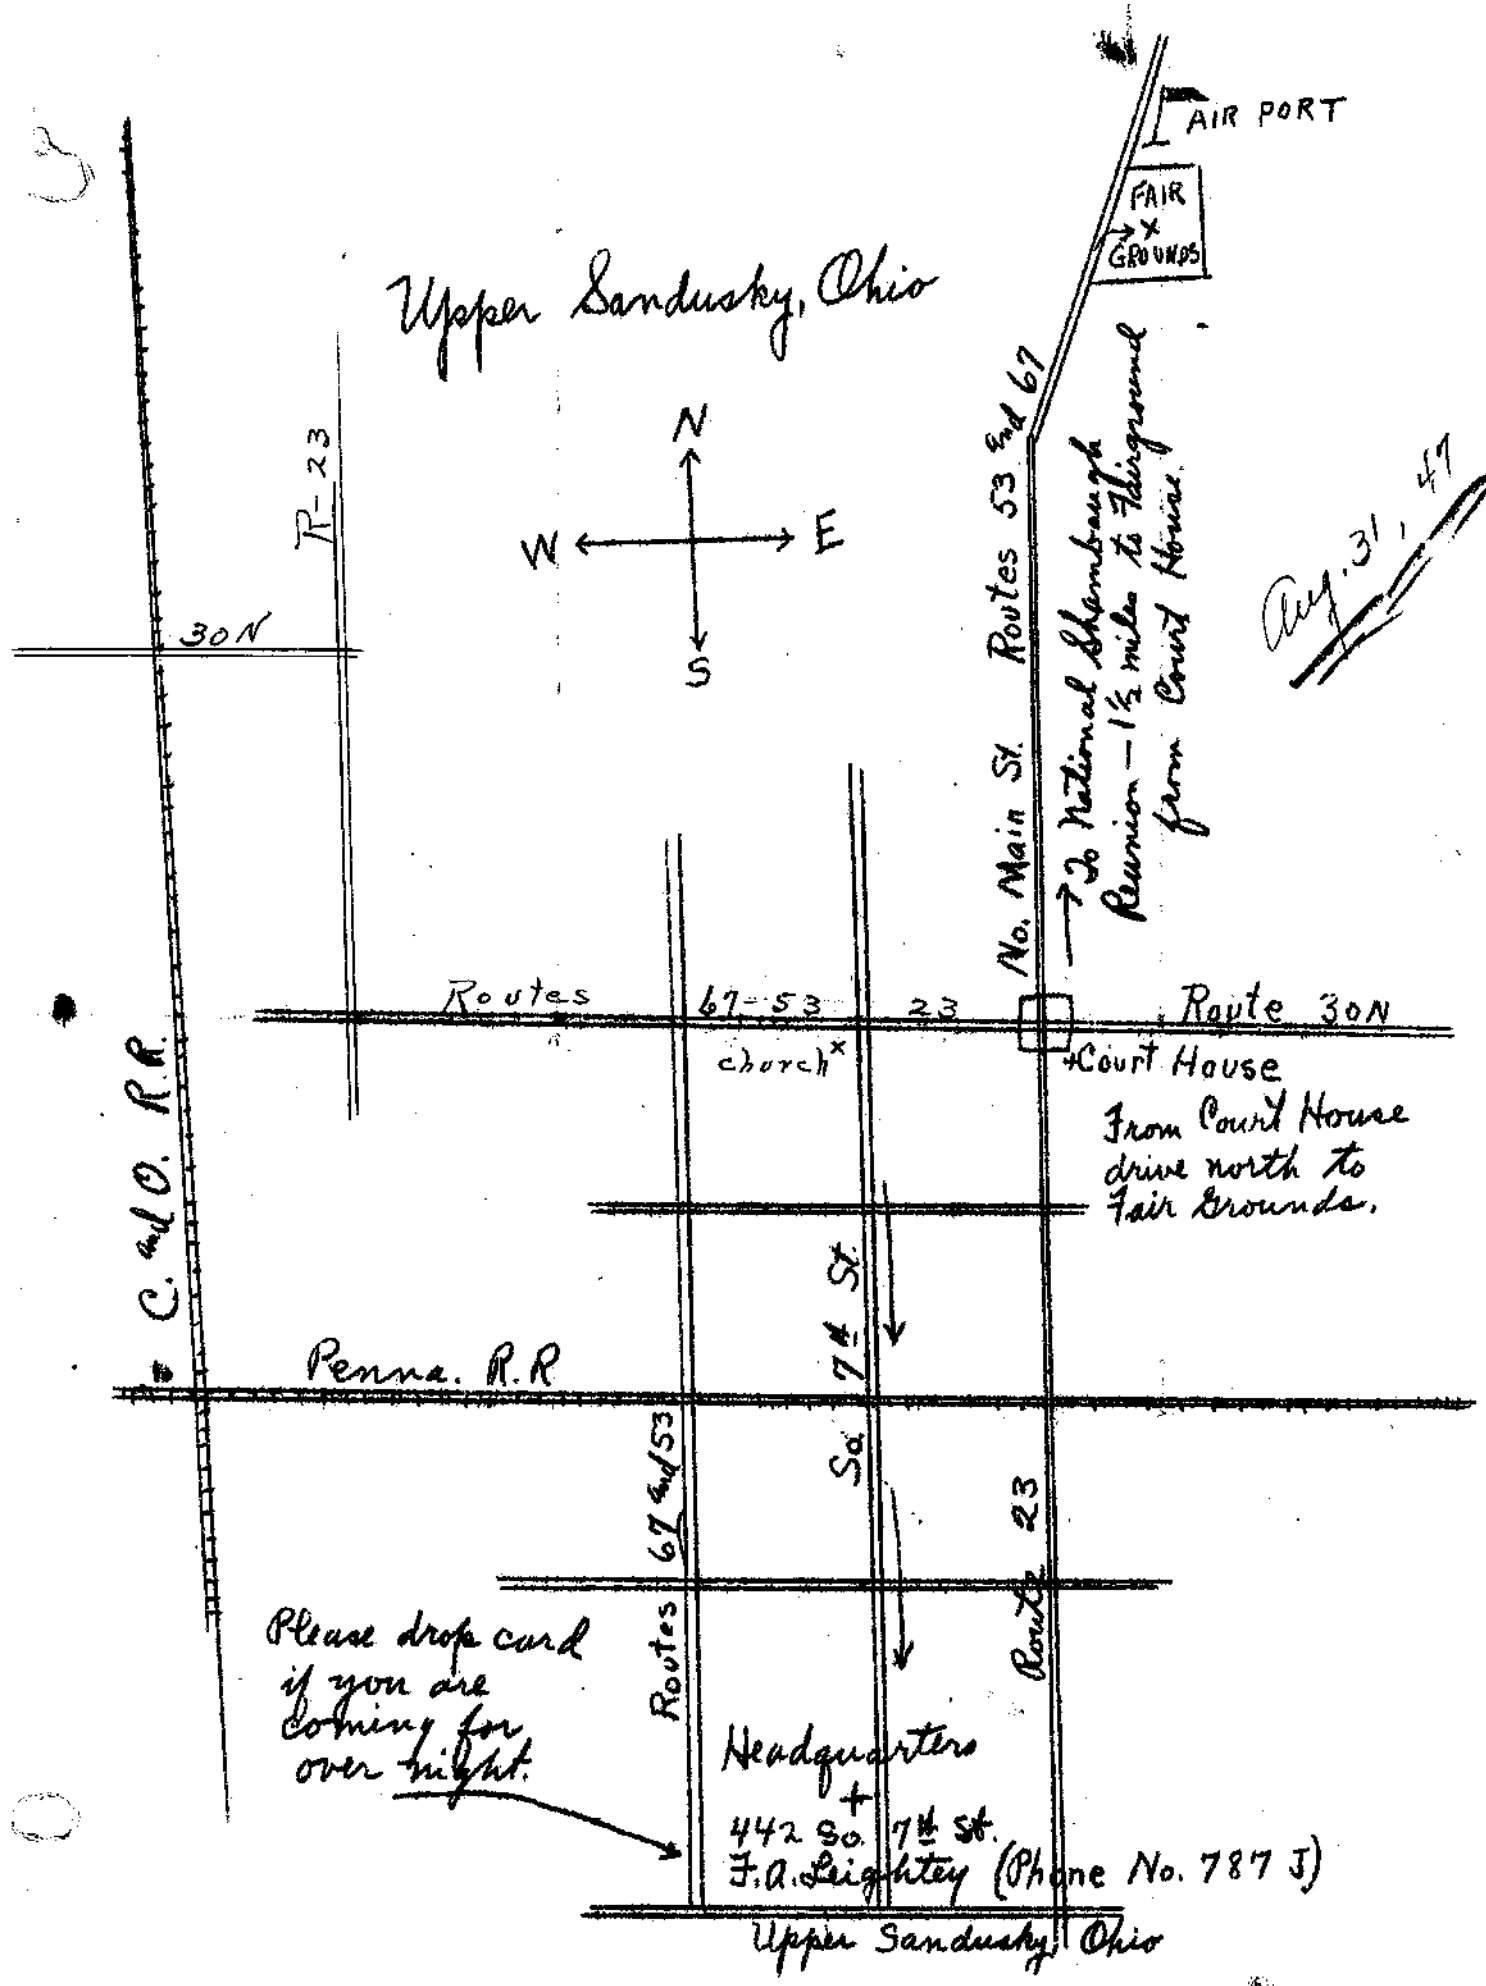 AIR PORT
FAIR
X
GROUNDS
Upper Sandusky, Ohio
R-23
N
W E
S
30 N
No. Main St. Routes 53 and 67
To National Shambaugh
Reunion - 1 1/2 miles to Fairground
from Court House.
Aug. 31, 47
Routes 67-53 23
Route 30N
church x
+Court House
From Court House
drive north to
Fair Grounds.
C. and O. R.R.
Penna. R.R
So. 7th St.
Routes 67 and 53
Route 23
Please drop card
if you are
coming for
over night.
Headquarters
+
442 So. 7th St.
F.A. Leightey (Phone No. 787 J)
Upper Sandusky, Ohio